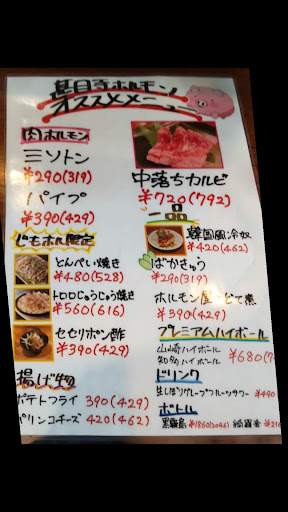 甚目寺ホルモン
オススメメニュー
肉ホルモン
ミソトン
¥290(319)
パイプ
¥390(429)
じもホル限定
とんぺい焼き
¥480(528)
トロロじゅうじゅう焼き
¥560(616)
セセリポン酢
¥390(429)
揚げ物
ポテトフライ 390(429)
パリンコチーズ 420(462)
中落ちカルビ
¥720(792)
一品
韓国風冷奴
¥420(462)
ばかきゅう
¥290(319)
ホルモン屋のどて煮
¥390(429)
プレミアムハイボール
山崎ハイボール
知多ハイボール
¥680(7
ドリンク
生しぼりグレープフルーツサワー ¥490
ボトル
黒霧島 ¥1860(2046)